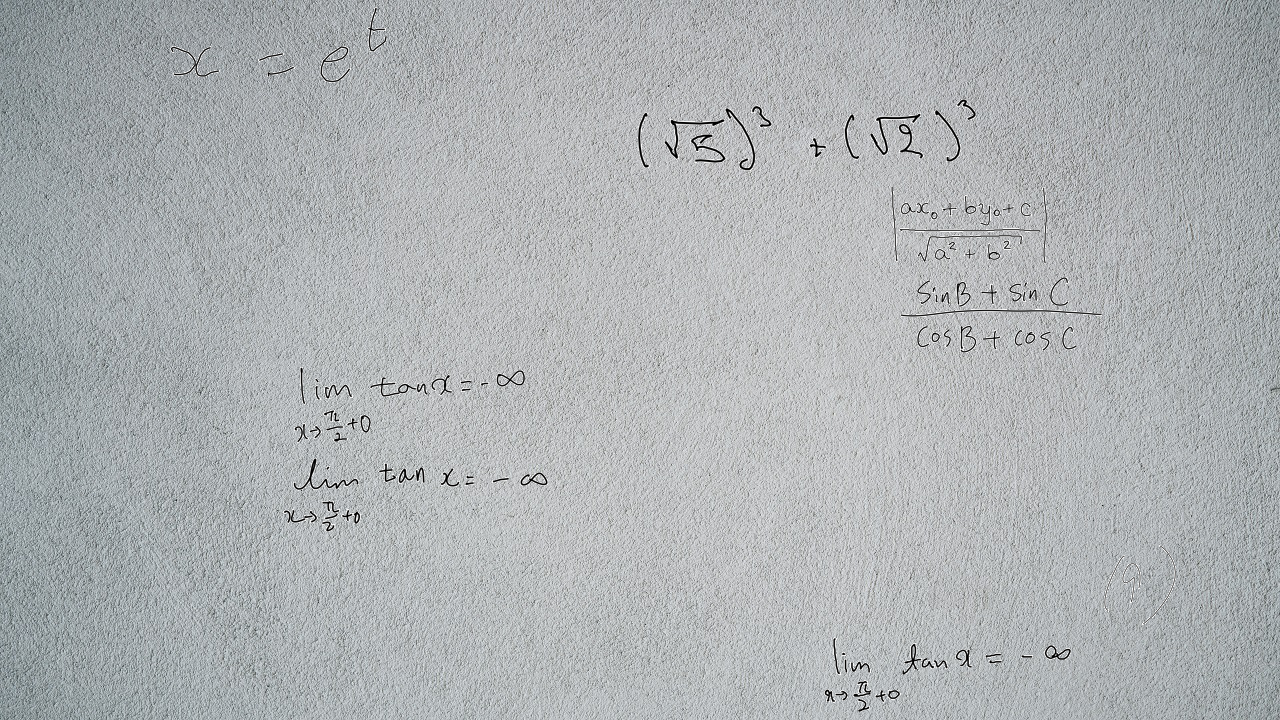 x = e^t
(√5)^3 + (√2)^3
|(ax₀ + by₀ + c)/√(a² + b²)|
(sin B + sin C)/(cos B + cos C)
lim_{x→π/2+0} tan x = -∞
lim_{x→π/2+0} tan x = -∞
lim_{x→π/2+0} tan x = -∞